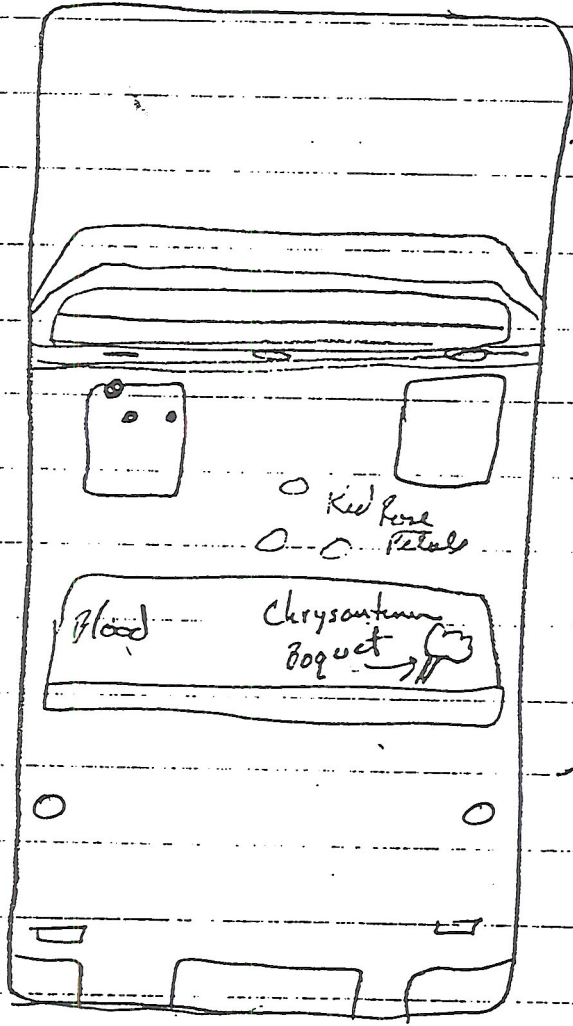 Red Rose
Petals
Blood
Chrysantemum
Boquet